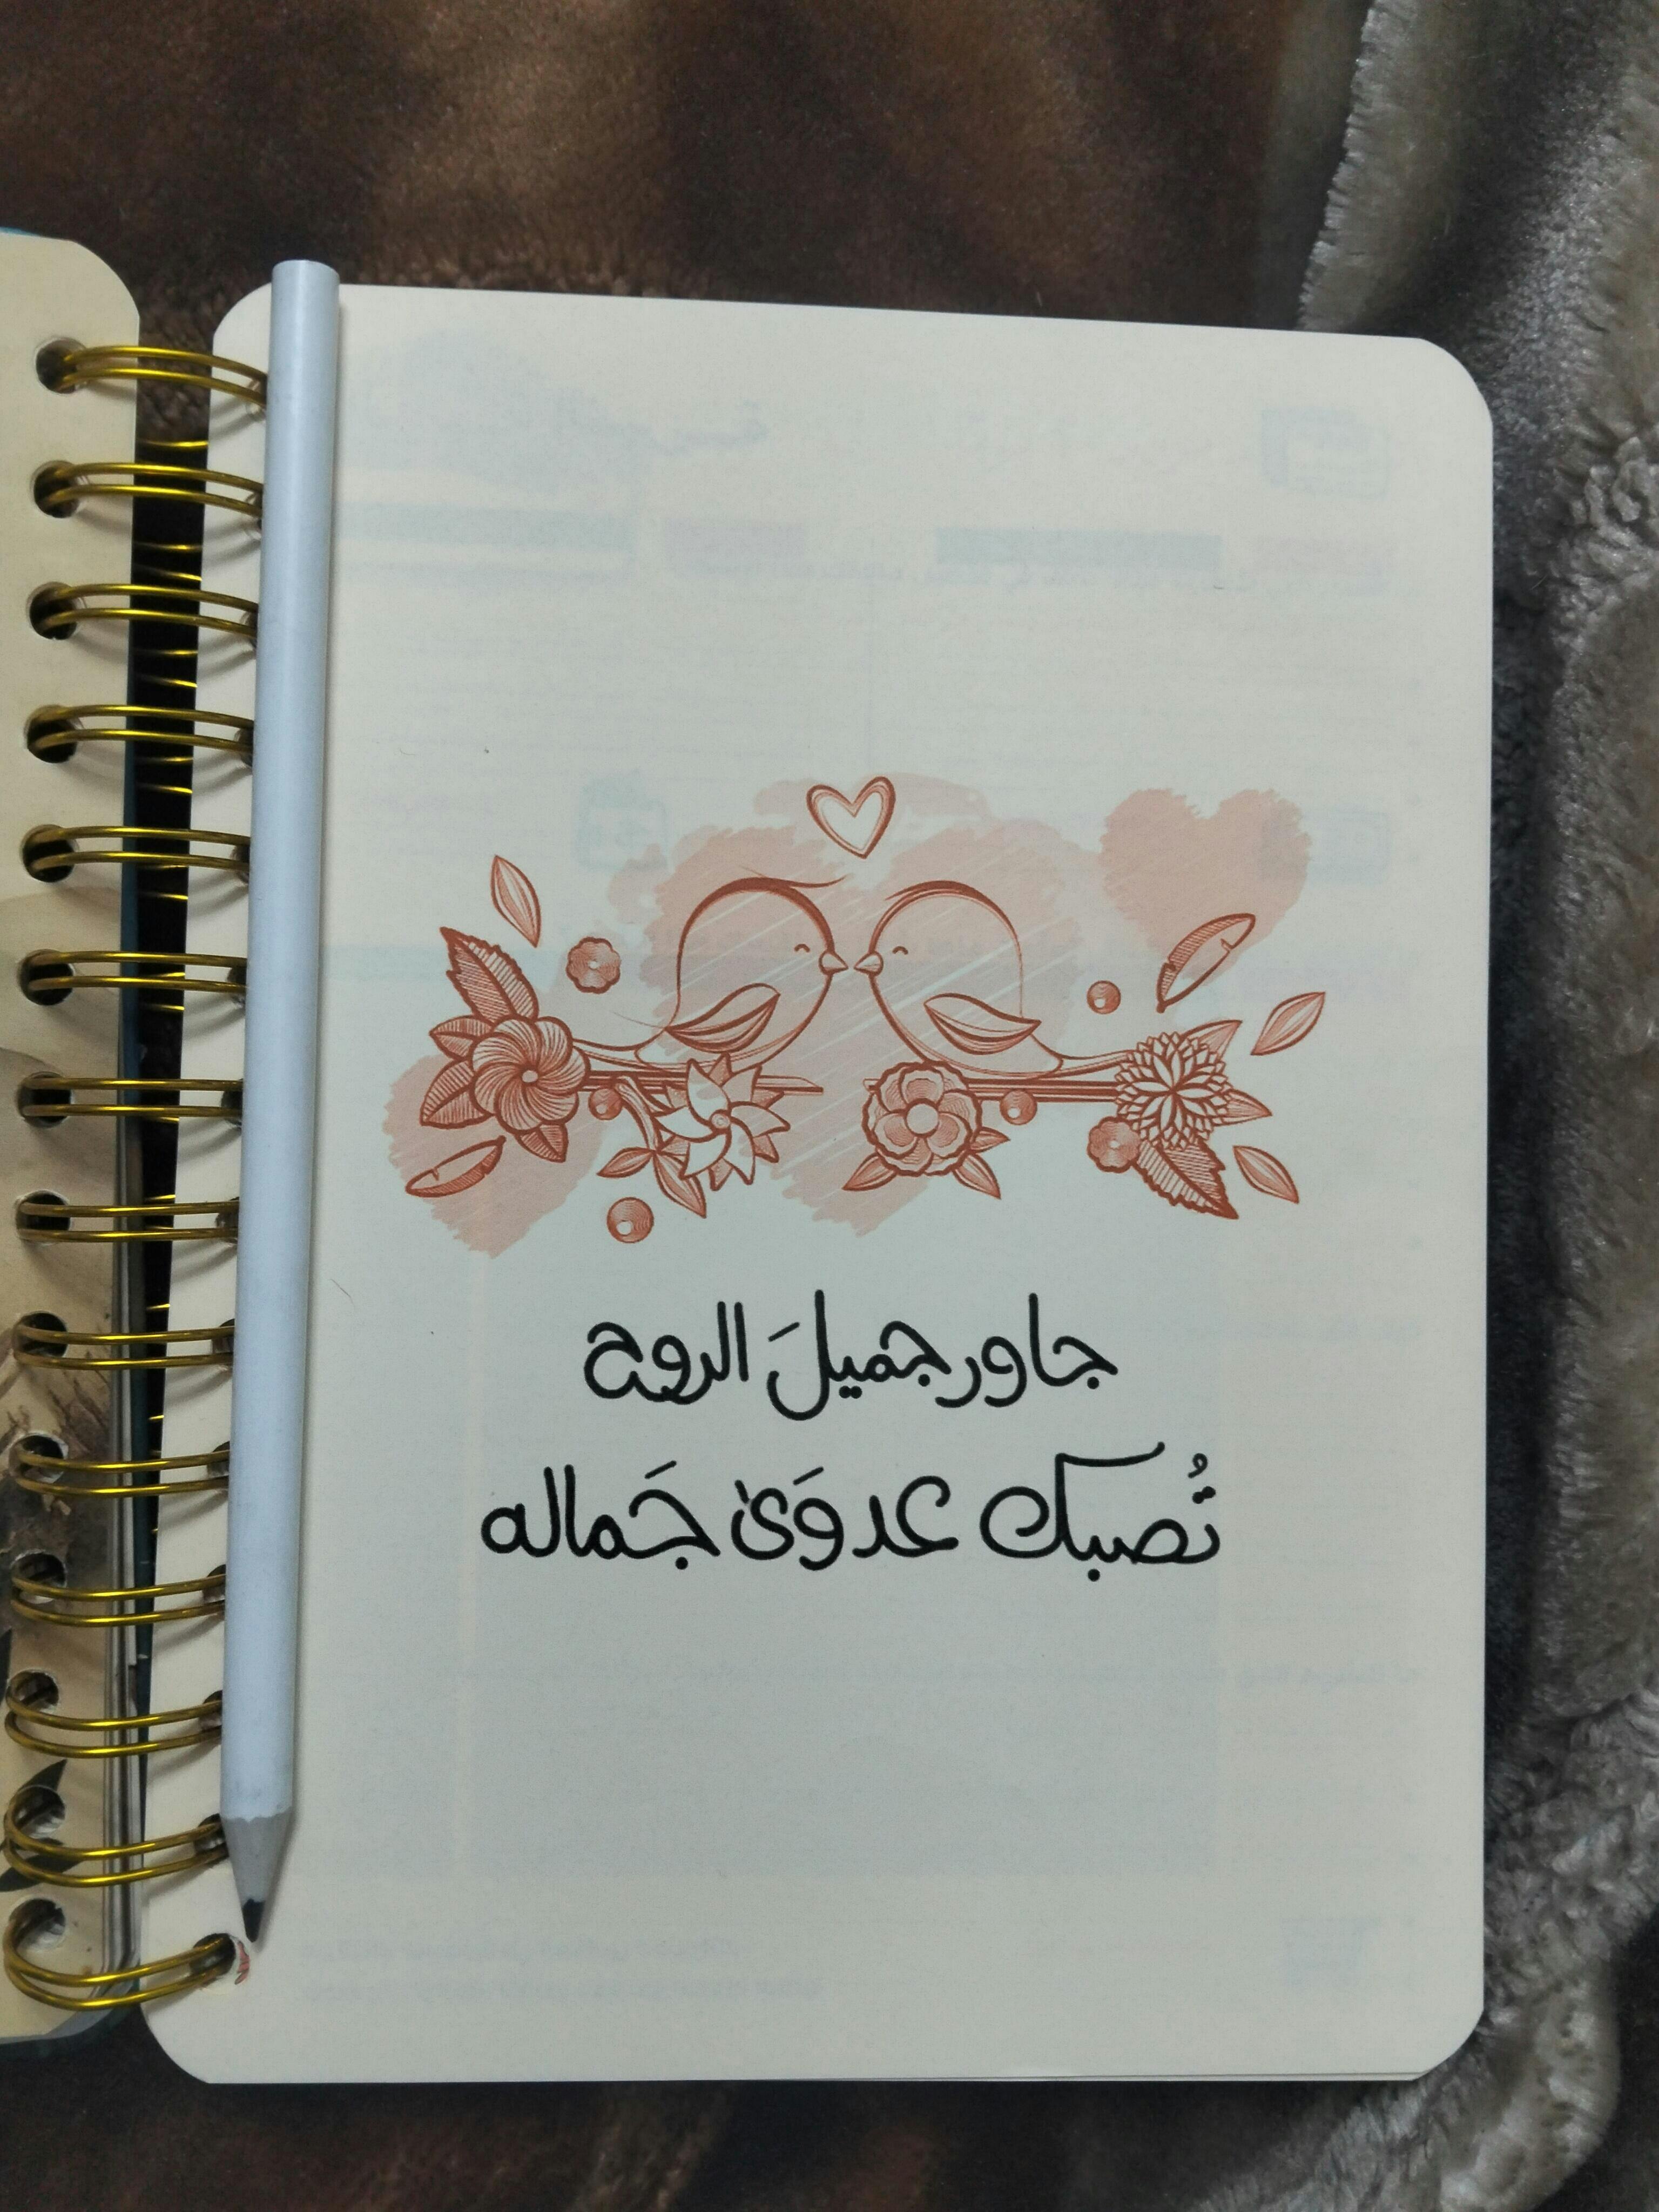 جاور جميلَ الروح
تُصبك عدوَىٰ جَماله